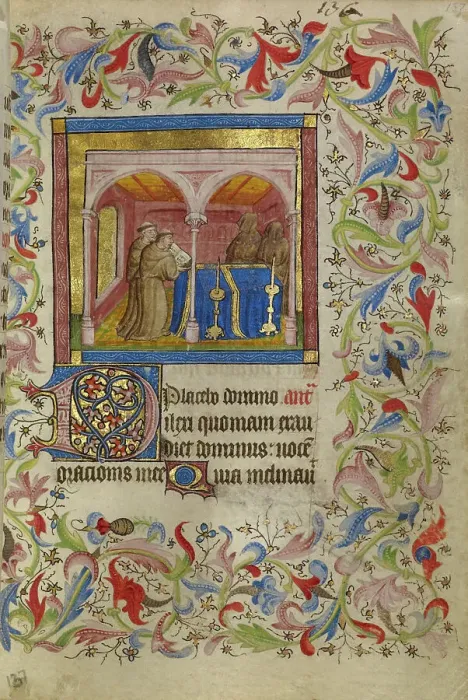 136
Placebo domino. ant̃
Dilexi quoniam exau
diet dominus: uocẽ
oracionis mee Quia inclinauit
137